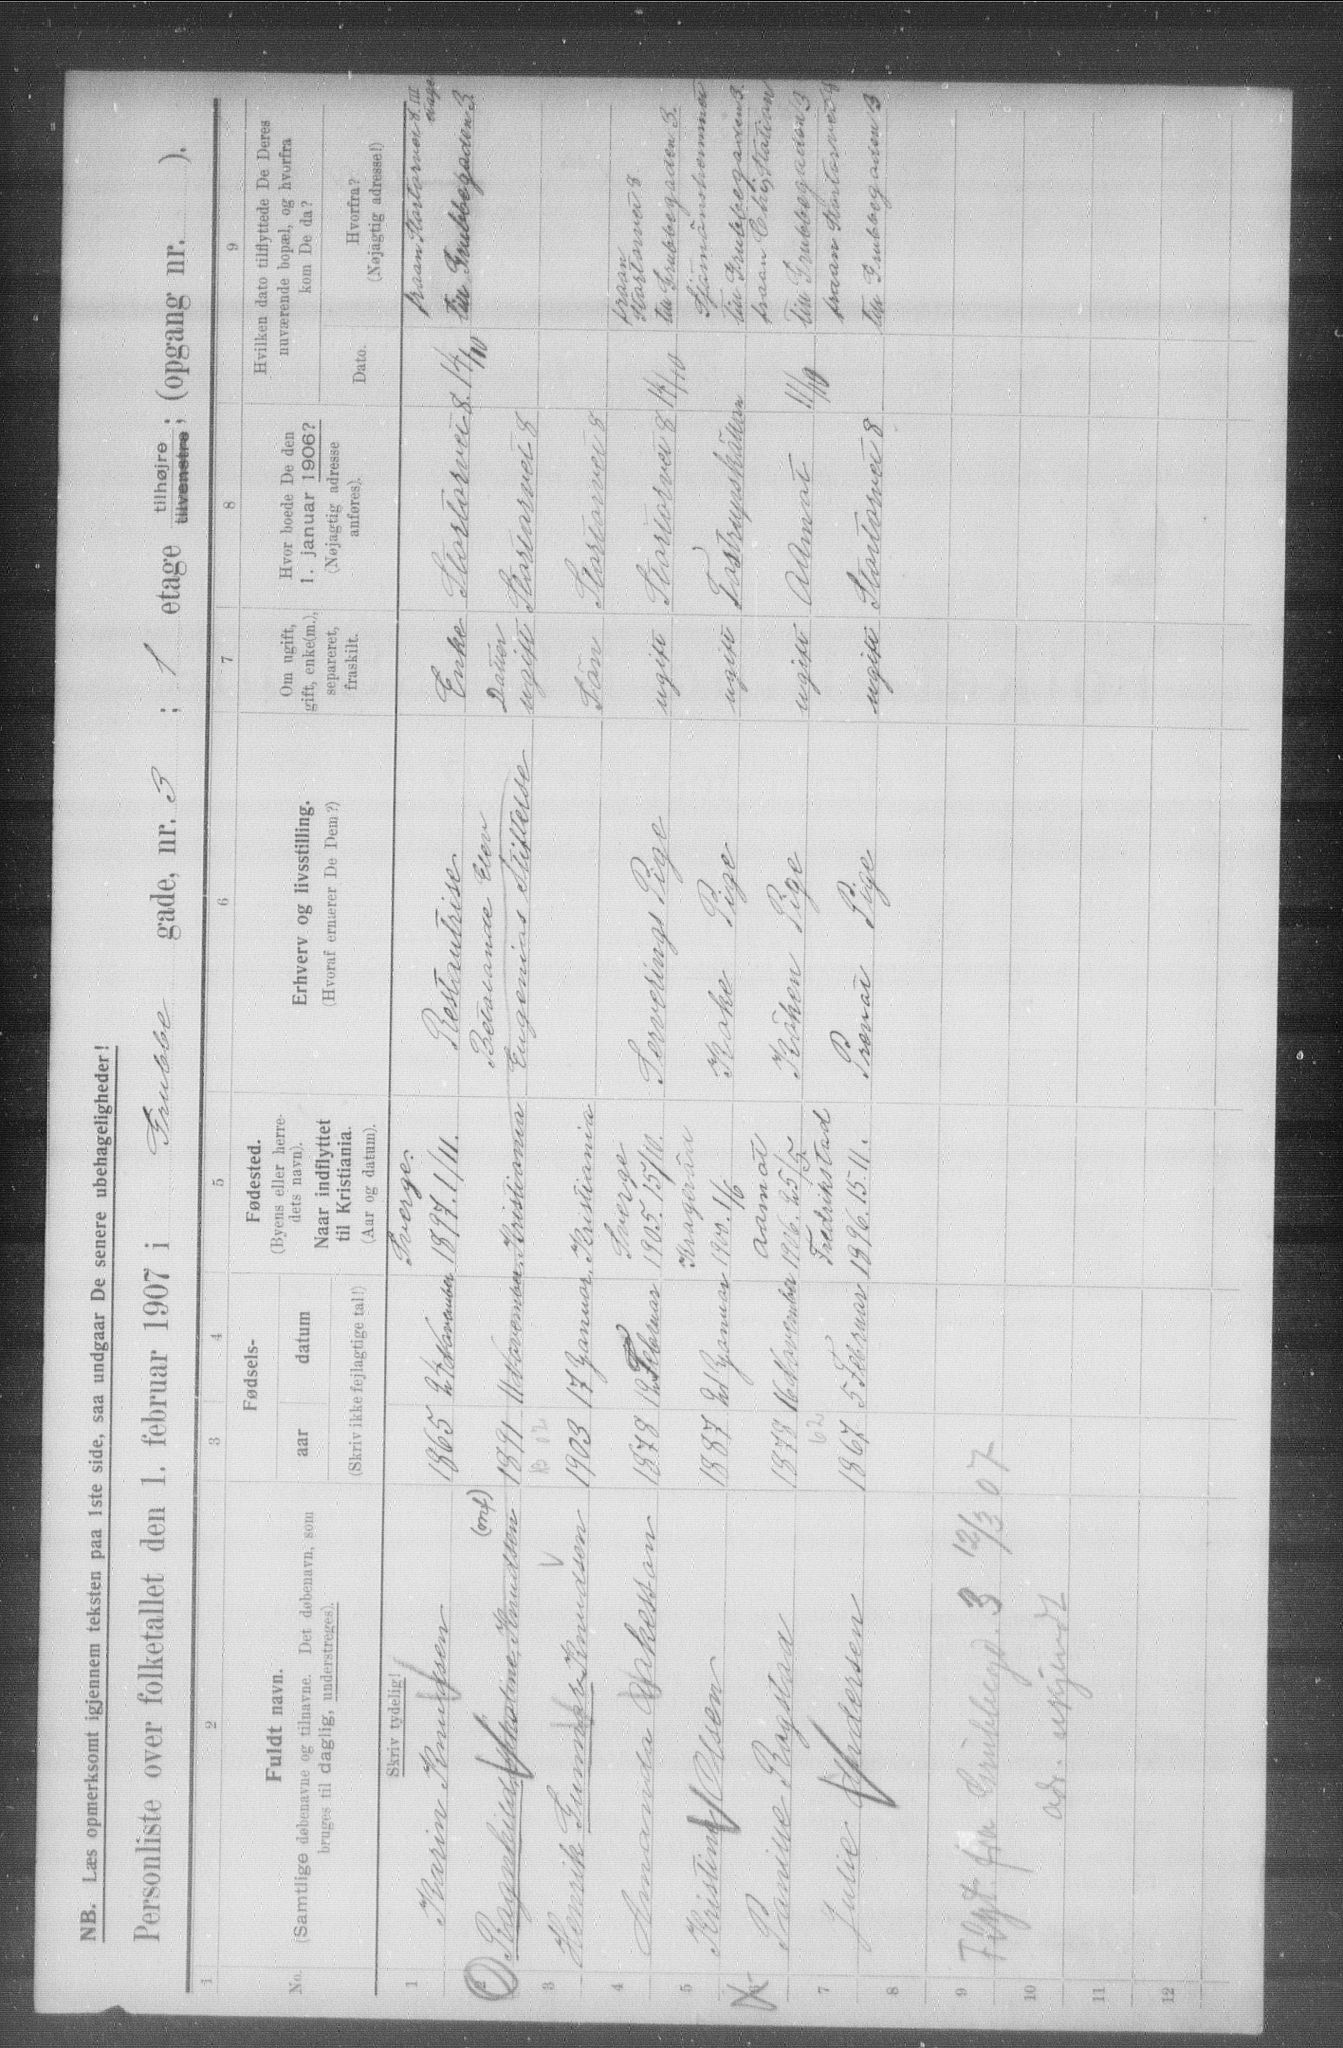 NB. Læs opmerksomt igjennem teksten paa 1ste side, saa undgaar De senere ubehageligheder!
Personliste over folketallet den 1. februar 1907 i Grubbe gade, nr. 3 ; 1 etage tilhøjre tilvenstre ; (opgang nr. ).
1 2 3 4 5 6 7 8 9
No.
Fuldt navn.
(Samtlige døbenavne og tilnavne. Det døbenavn, som
bruges til daglig, understreges).
Fødsels-
aar datum
(Skriv ikke fejlagtige tal!)
Fødested.
(Byens eller herre-
dets navn).
Naar indflyttet
til Kristiania.
(Aar og datum).
Erhverv og livsstilling.
(Hvoraf ernærer De Dem?)
Om ugift,
gift, enke(m.),
separeret,
fraskilt.
Hvor boede De den
1. januar 1906?
(Nøjagtig adresse
anføres).
Hvilken dato tilflyttede De Deres
nuværende bopæl, og hvorfra
kom De da?
Dato.
Hvorfra?
(Nøjagtig adresse!)
Skriv tydelig!
1 Karin Knudsen 1865 24 November Sverge. 1897. 1/11. Restautrise Enke Stortorvet 8. 14/10 fraan Stortorvet 8 III etage
till Grubbegaden 3.
2 Ragnhild Knudsen 1891 11 November Kristiania Betalande Elev
Eugenias Stiftelse Datter
ugift Stortorvet 8
3 Henrik Gunnar Knudsen 1903 17 Januar Kristiania Søn Stortorvet 8
4 Amanda Åkesson 1878 12 Februar Sverge
1905. 15/10. Serverings Pige ugift Stortorvet 8 14/10 fraan
Stortorvet 8
till Grubbegaden 3.
5 Kristine Olsen 1887 21 Januar Kragerø
Koke Pige ugift
till Grubbegaden 3.
6 Rogstad 1878 16 November Aamot
1906. 25/5 Køken Pige ugift Aamot 11/10 fraan Station
till Grubbegaden 3
7 Julie Andersen 1867 5 Februar Fredrikstad
1896. 15.11. Privat Pige ugift Stortorvet 8 fraan Stortorvet 8
till Grubbegaden 3
8
9 Flyt. fra Grubbegd. 3 12/3 07
10 adr. ukjendt
11
12